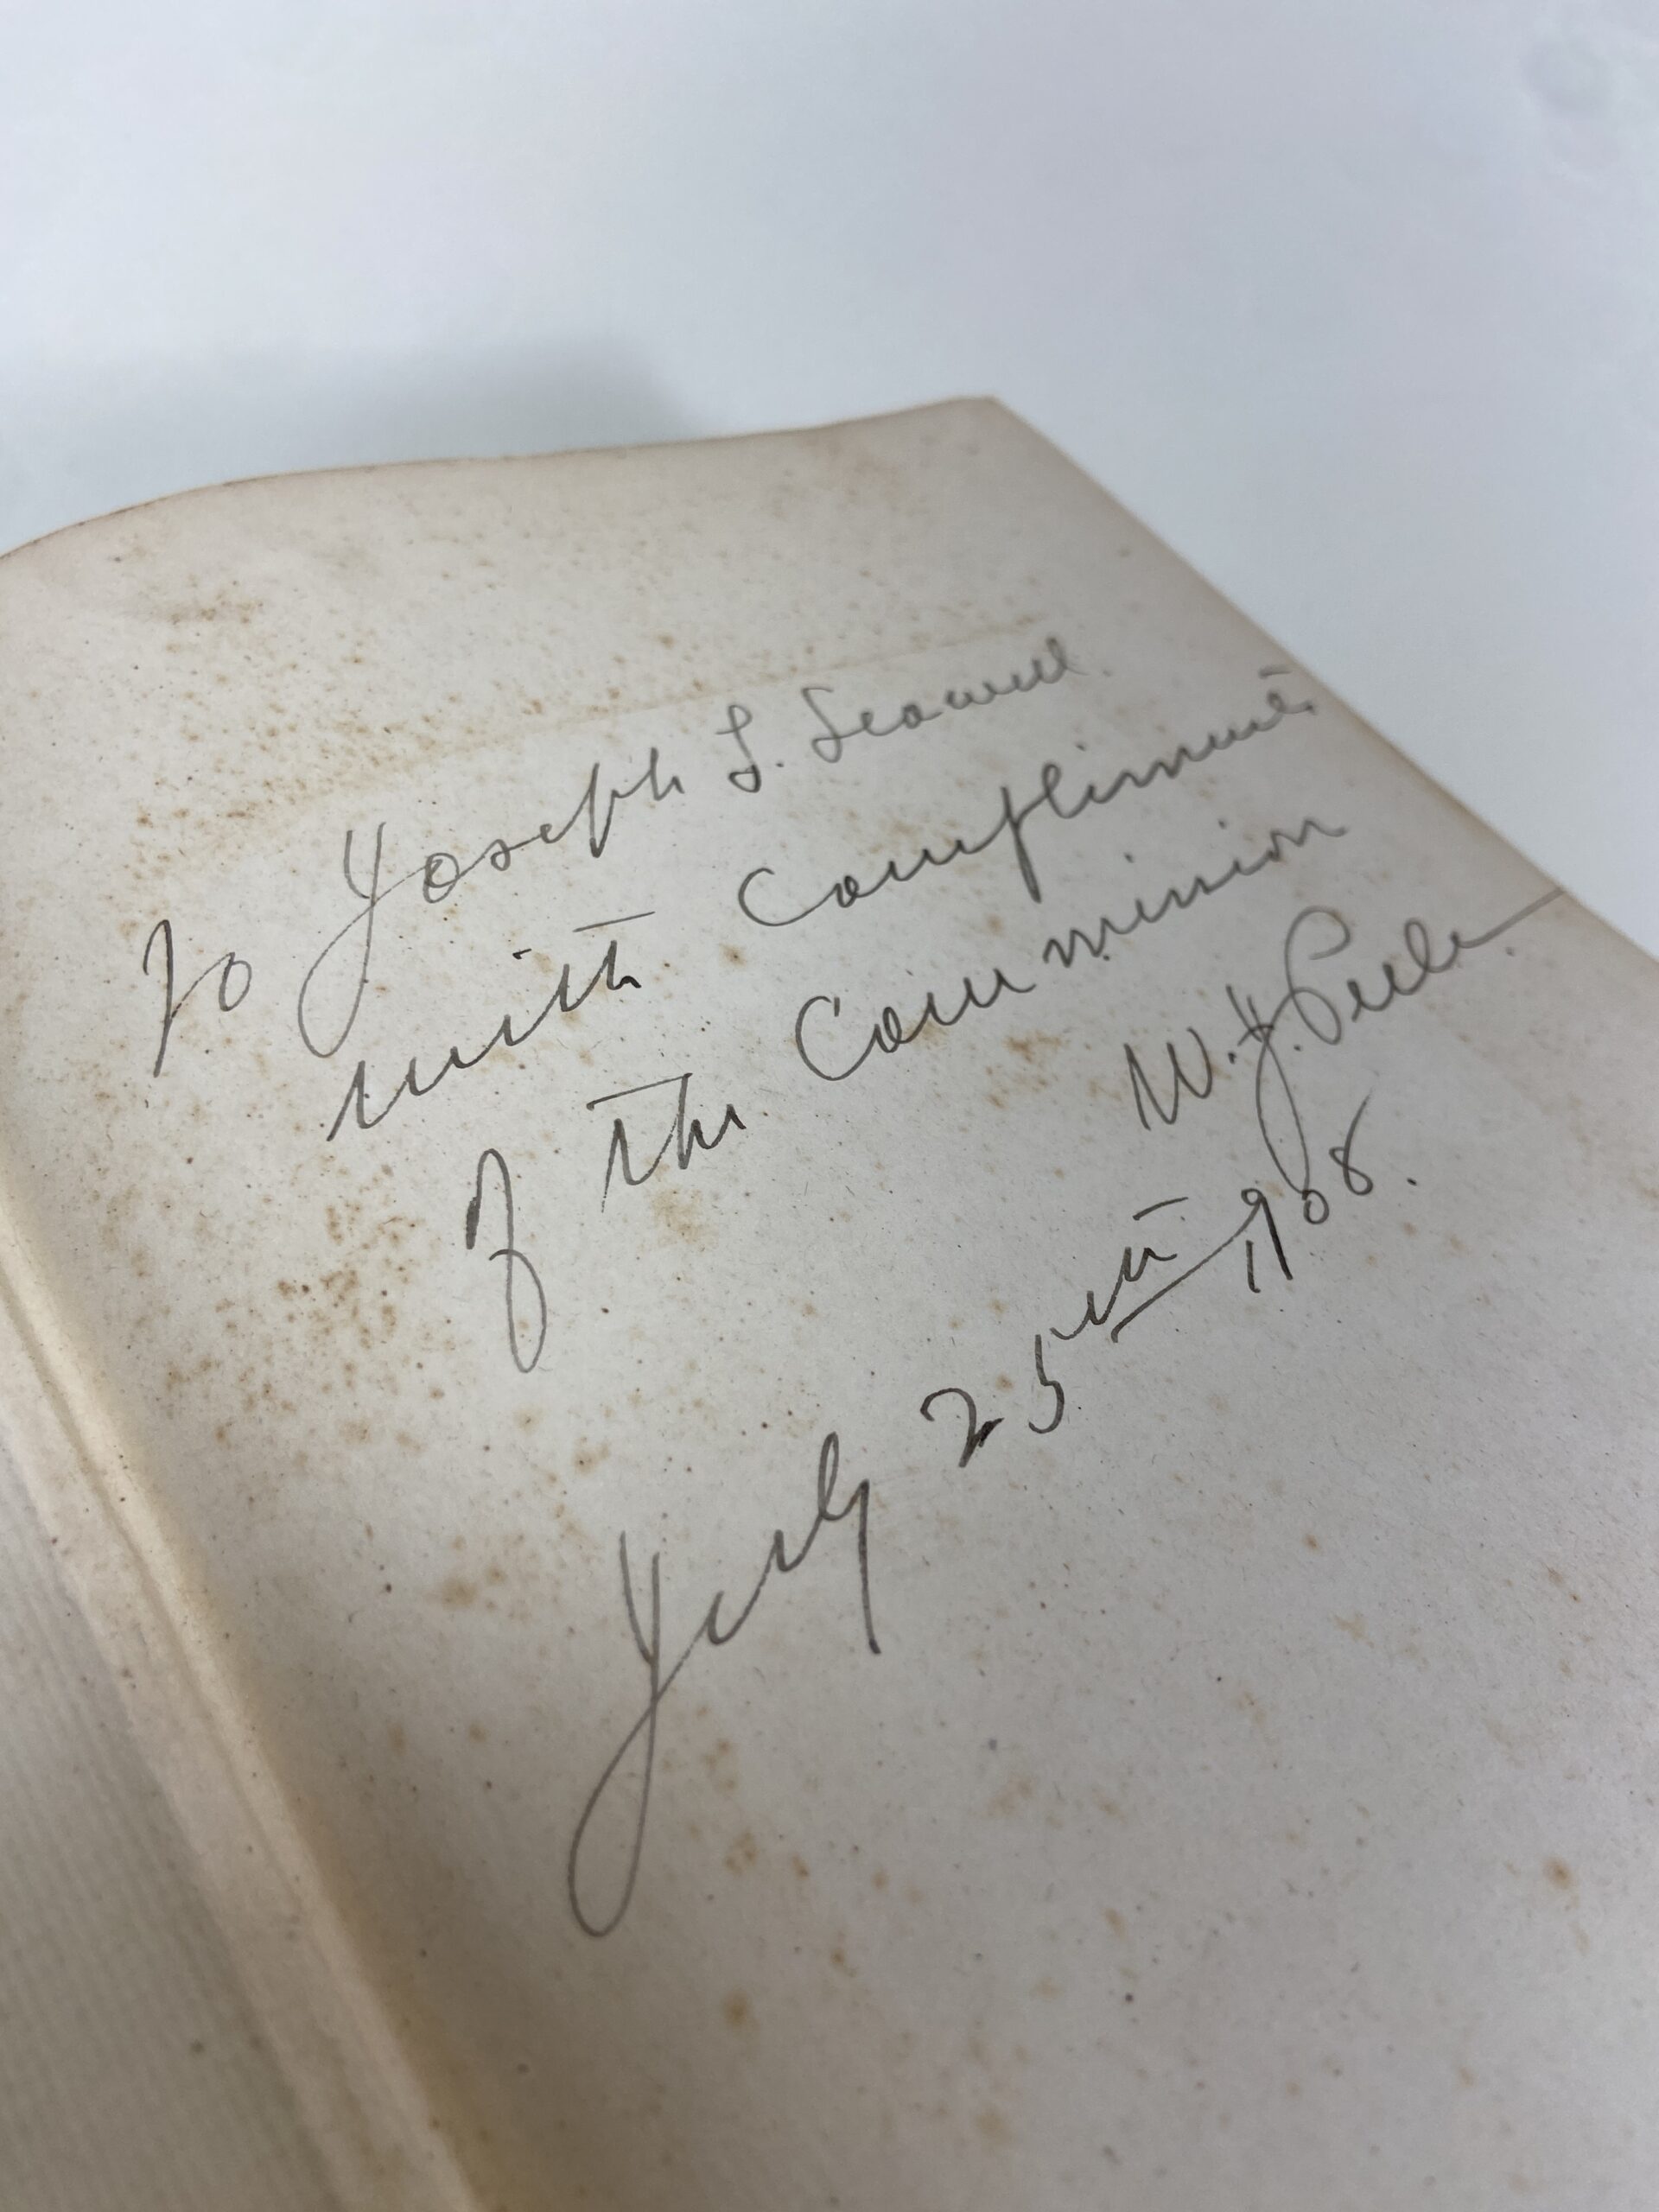 To Joseph S. Seawell.
with Compliments
of the Commission
W. J. Peele.
July 25th 1908.